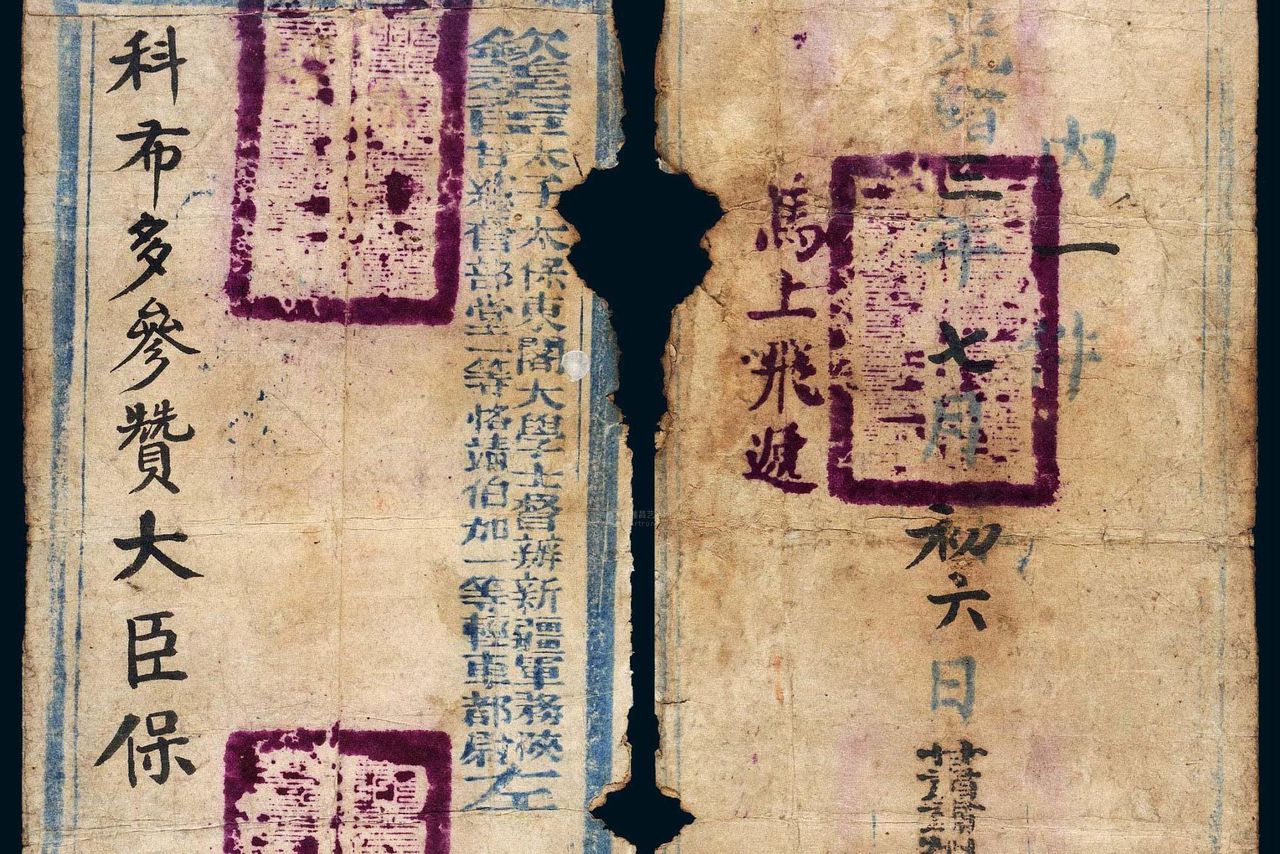 欽差大臣
太子太保東閣大學士督辦新疆軍務陝
甘總督部堂一等恪靖伯加一等輕車都尉
左
科布多參贊大臣保
內一件
光緒三年七月初六日
馬上飛遞